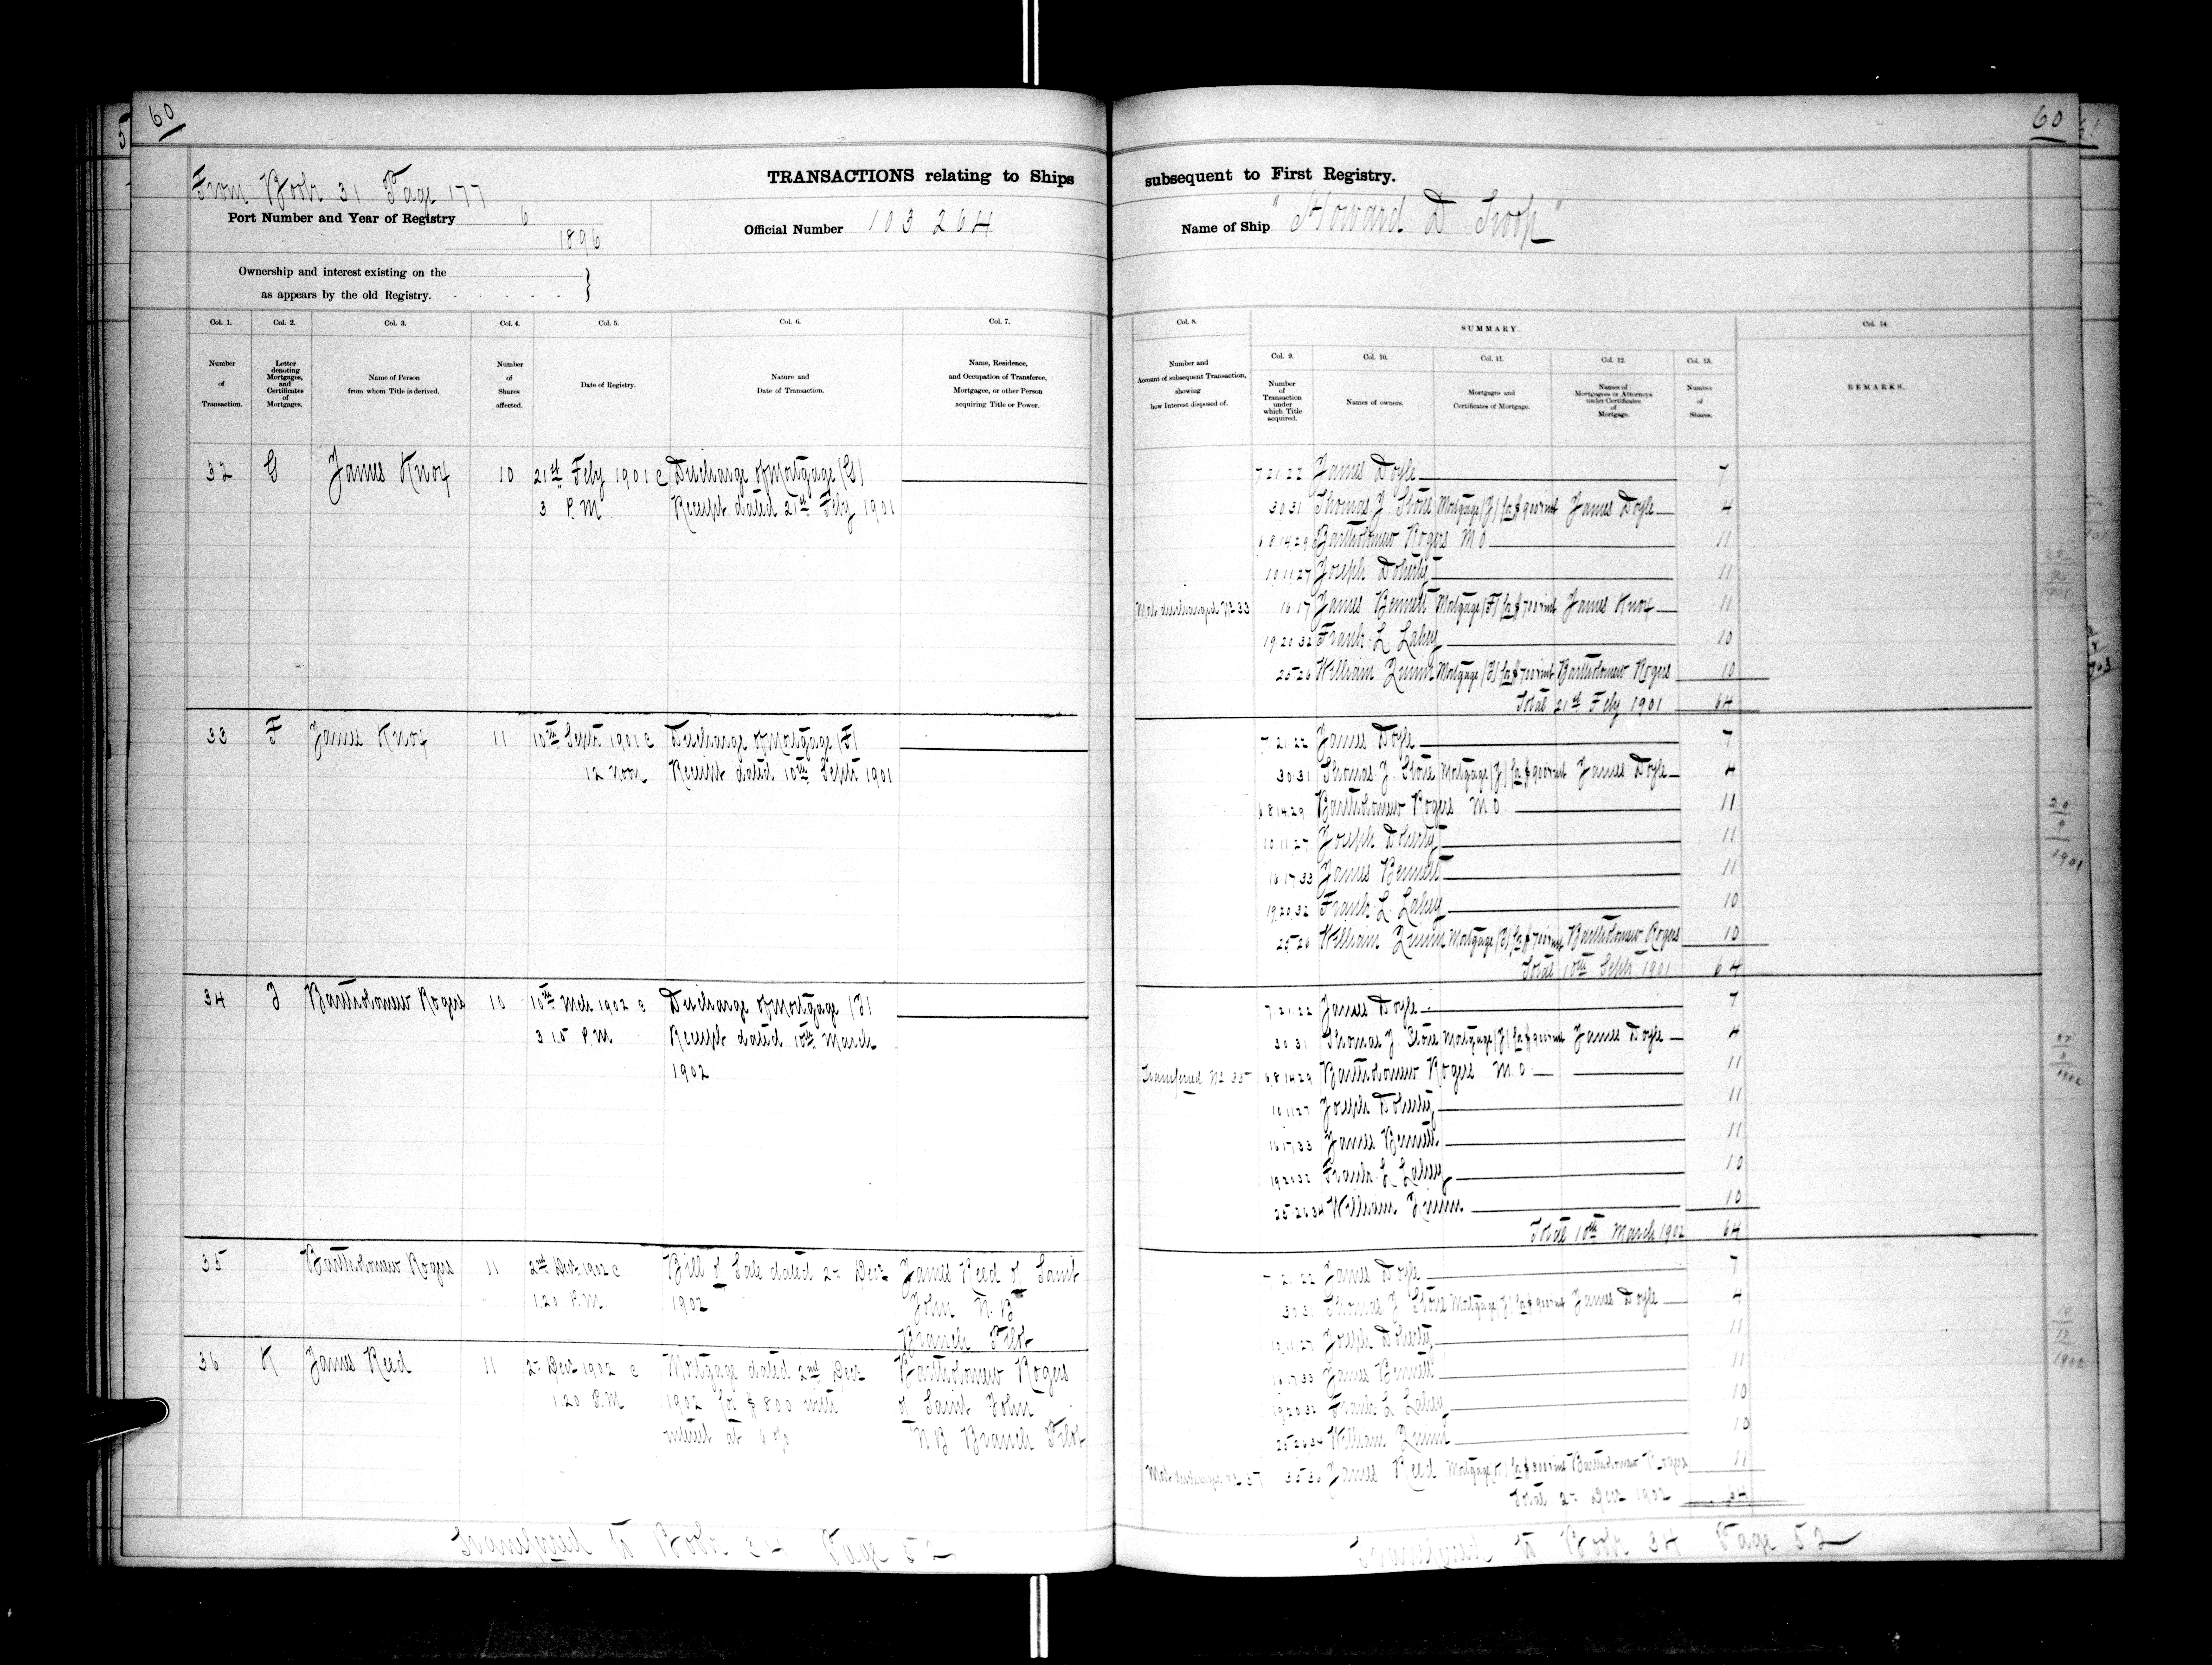 60
From Book 31 Page 177
TRANSACTIONS relating to Ships
Port Number and Year of Registry 6
1896
Official Number 103 264
Ownership and interest existing on the
as appears by the old Registry.
Col. 1. Col. 2. Col. 3. Col. 4. Col. 5. Col. 6. Col. 7.
Number of Transaction.
Letter denoting Mortgages, and Certificates of Mortgages.
Name of Person from whom Title is derived.
Number of Shares affected.
Date of Registry.
Nature and Date of Transaction.
Name, Residence, and Occupation of Transferee, Mortgagee, or other Person acquiring Title or Power.
32 G James Knox 10 21st Feby 1901 Discharge of Mortgage (G)
3 P.M Receipt dated 21st Feby 1901
33 F James Knox 11 10th Septr 1901 Discharge of Mortgage (F)
12 noon Receipt dated 10th Septr 1901
34 Bartholomew Rogers 10 10th Mch 1902 Discharge of Mortgage
3 15 P.M Receipt dated 10th March
1902
35 Bartholomew Rogers 11 2nd Decr 1902 Bill of Sale dated 2nd Decr James Reed of Saint
1.20 P.M. 1902 John N.B
Branch Pilot
36 K James Reed 11 2nd Decr 1902 Mortgage dated 2nd Decr Bartholomew Rogers
1.20 P.M 1902 for $800 with of Saint John
interest at N.B Branch Pilot
Transferred to Book 34 Page 52
60
61
subsequent to First Registry.
Name of Ship "Howard D Troop"
Col. 8. SUMMARY. Col. 14.
Col. 9. Col. 10. Col. 11. Col. 12. Col. 13.
Number and Account of subsequent Transaction, showing how Interest disposed of.
Number of Transaction under which Title acquired.
Names of owners.
Mortgages and Certificates of Mortgage.
Names of Mortgagees or Attorneys under Certificates of Mortgage.
Number of Shares.
REMARKS.
7 21 22 James Doyle 7
30 31 Thomas J. Stone Mortgage (J) for $900 & int James Doyle 4
6 8 14 29 Bartholomew Rogers M.O 11
10 11 27 Joseph Doherty 11
Mort discharged No 33 16 17 James Bennett Mortgage (F) for $700 & int James Knox 11
19 20 32 Frank L Lahey 10
25 26 William Quinn Mortgage for $700 & int Bartholomew Rogers 10
Total 21st Feby 1901 64
22
2
1901
7 21 22 James Doyle 7
30 31 Thomas J. Stone Mortgage (J) for $900 & int James Doyle 4
6 8 14 29 Bartholomew Rogers M.O. 11
10 11 27 Joseph Doherty 11
16 17 33 James Bennett 11
19 20 32 Frank L. Lahey 10
25 26 William Quinn Mortgage for $700 & int Bartholomew Rogers 10
Total 10th Septr 1901 64
20
9
1901
7 21 22 James Doyle 7
30 31 Thomas J. Stone Mortgage (J) for $900 & int James Doyle 4
Transferred No 35 6 8 14 29 Bartholomew Rogers M.O 11
10 11 27 Joseph Doherty 11
16 17 33 James Bennett 11
19 20 32 Frank L Lahey 10
25 26 34 William Quinn 10
Total 10th March 1902 64
3
1902
7 21 22 James Doyle 7
30 31 Thomas J Stone Mortgage (J) for $900 & int James Doyle 4
10 11 27 Joseph Doherty 11
16 17 33 James Bennett 11
19 20 32 Frank L Lahey 10
25 26 34 William Quinn 10
35 36 James Reed Mortgage (K) for $800 & int Bartholomew Rogers 11
Total 2nd Decr 1902 64
12
1902
Transferred to Book 34 Page 52